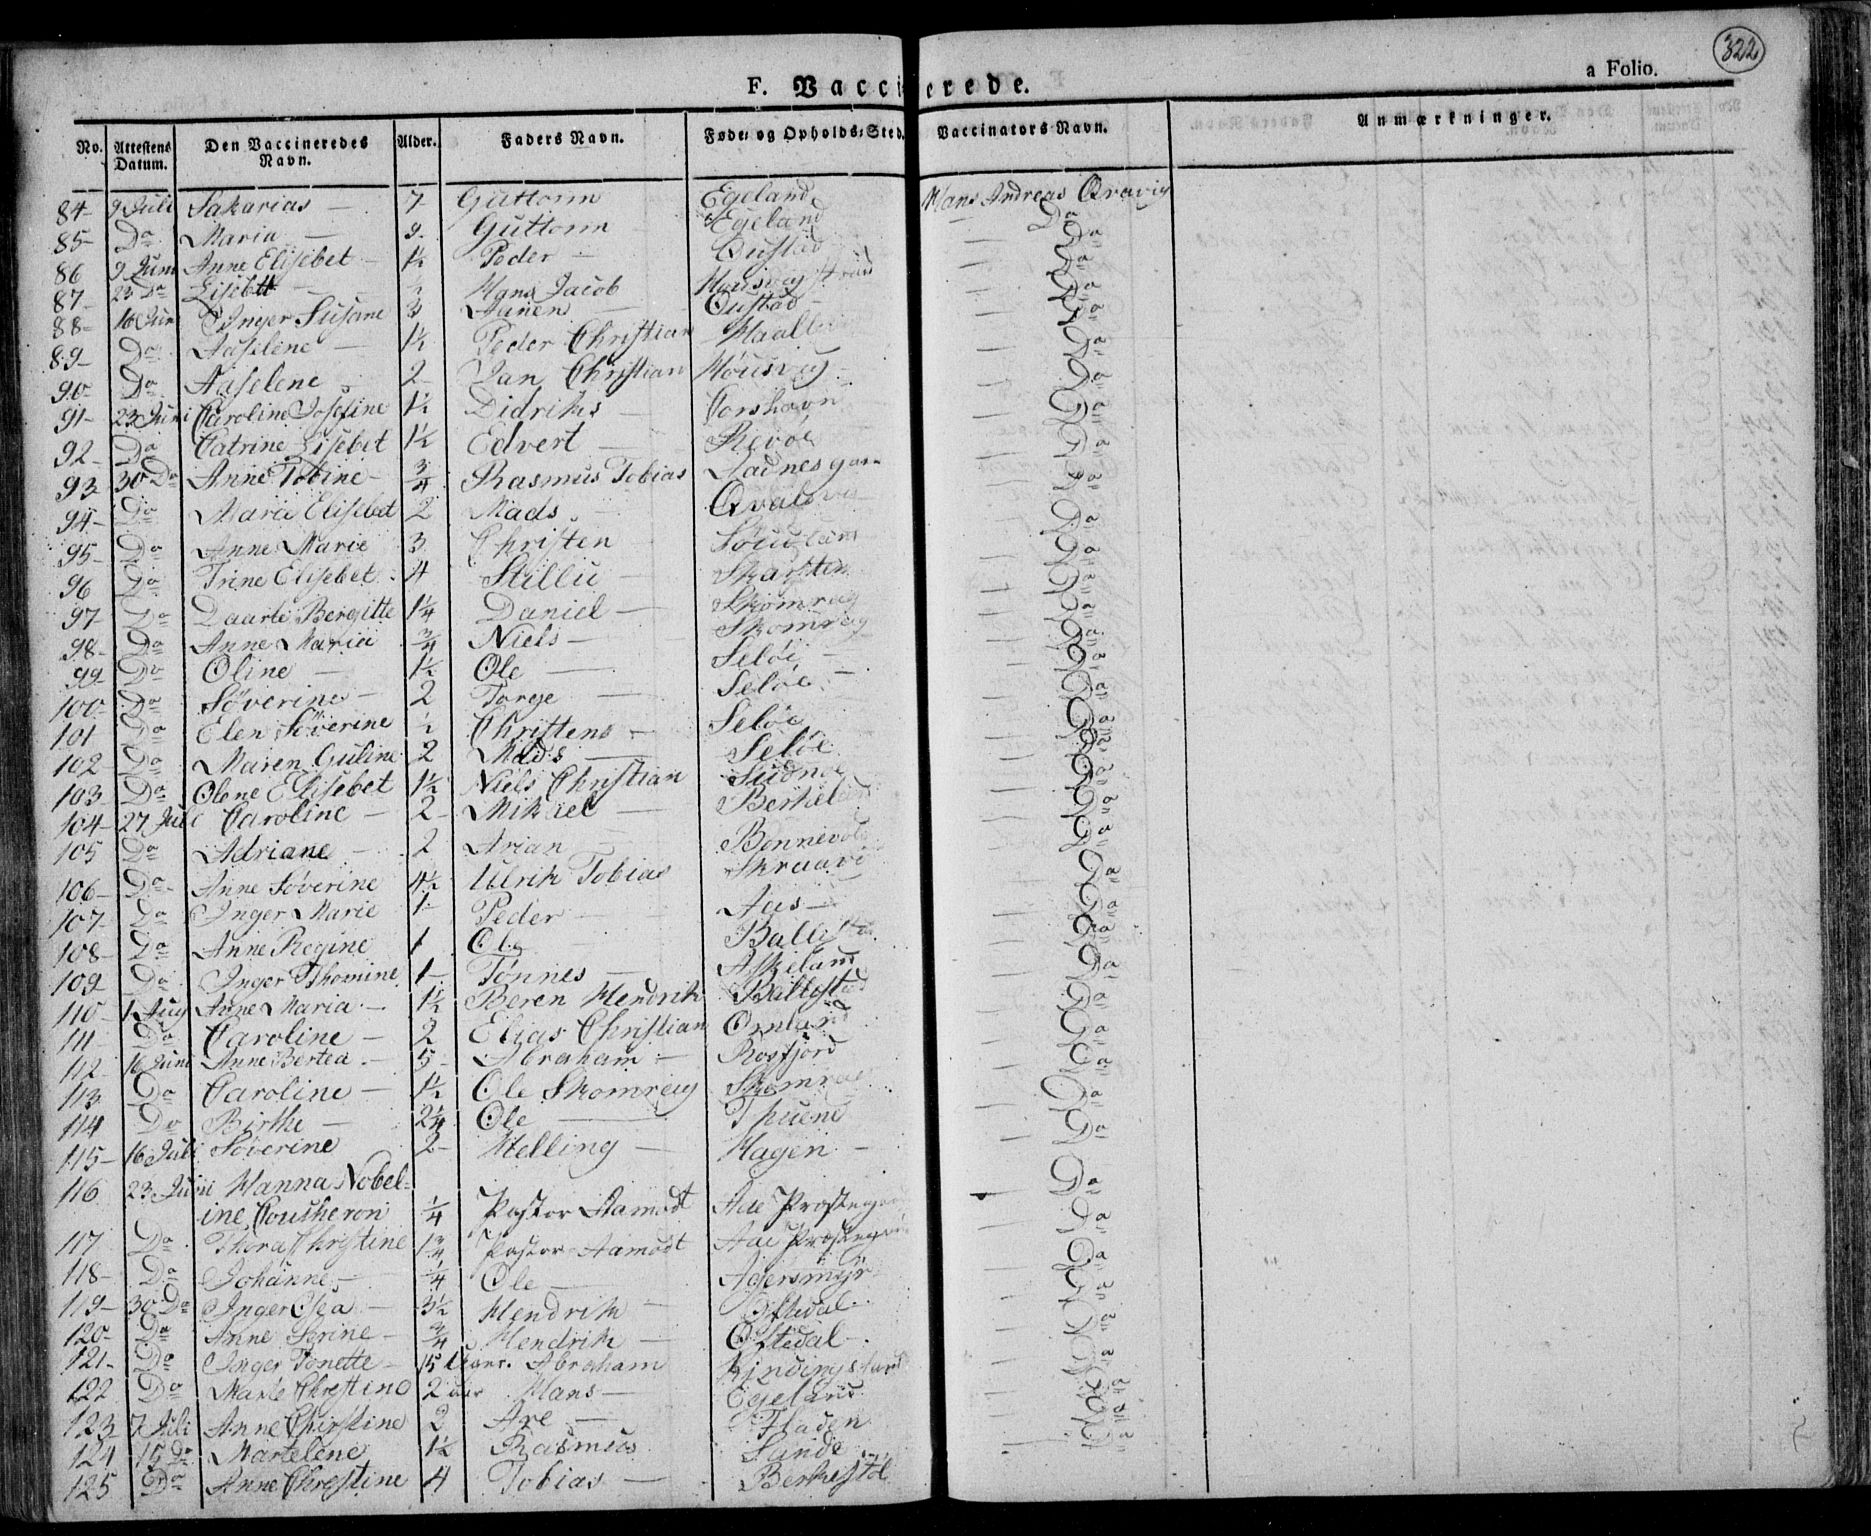 322
a Folio.
F. Vaccinerede.
No. Attestens Datum. Den Vaccineredes Navn. Alder. Faders Navn. Føde- og Opholds-Sted. Vaccinators-Navn. Anmærkninger.
84- 9 Juli Sakarias — 7 Guttorm Egeland Hans Andreas Qvavig
85- Do Maria — 9- Guttorm — Egeland — Do
86 9 Juni Anne Elisebet — 1½ Peder — — Do
87- 23 Do Lisebtt — Hans Jacob — Do
88- 16 Juni Inger Susane 3 — Do
89- Do Aaselene — 1½ Peder Christian — Do
90- Do Aaselene 2- Jan Christian Housvig — Do
91- 23 Juni Caroline Josefine 1½ Didriks — Korshavn — Do
92- Do Catrine Lisebet 1½ Edvert — Revöe — Do
93 30 Do Anne Tobine — ¾ Rasmus Tobias — Do
94- Do Maria Elisebet 2 Mads — — Do
95- Do Anne Marie 3 Christen — — Do
96 Do Trine Elisebet 4 — Do
97 Do Daarte Bergitte 1¼ Daniel — Skomrag — Do
98- Do Anne Maria ¾ Niels — Skomrag — Do
99- Do Oline — 1½ Ole — Selöe — Do
100- Do Söverine — 2 Torge — Selöe — Do
101 Do Elen Söverine ½ Christens — Selöe — Do
102 Do Maren Guline 2 Mads — Selöe — Do
103 Do Olene Elisebet 1½ Niels Christian — Do
104- 27 Juli Caroline — 2- Mikael — — Do
105 Do Adriane — 2 Arian — Do
106- Do Anne Söverine 4½ Ulrik Tobias — Do
107- Do Inger Marie 1- Peder — Aas — Do
108- Do Anne Regine 1 Ole — Do
109 Do Inger Thomine 1- Tönnes — Askeland — Do
110- 1 Aug Anne Maria — 1½ Beren Hendrik Ballestad — Do
111- Do Caroline — 2 Elias Christian Omland — Do
112 16 Juni Anne Bertea — 5- Abraham — Rosfjord — Do
113 Do Caroline — 1½ Ole Skomrag Skomrag — Do
114 Do Birthe — 2¼ Ole — — Do
115- 16 Juli Söverine 2- Helling — Hagen — — Do
116 23 Juni Hanna Nobel-
ine Coucheron ¼ Pastor Aamodt Aae Præstegaar — Do
117 Do Thora Christine 1¾ Pastor Aamodt Aae Præstegaar — Do
118- Do Johanne — ¼ Ole — Agersmyr — Do
119- 30 Do Inger Osea — 3½ Hendrik — Oftedal — Do
120- Do Anne Serine — ¾ Hendrik — Oftedal — Do
121- Do Inger Tonette — 15 Abraham — Do
122 Do Marte Chrestine 2 aar Hans — Egeland — Do
123 7 Juli Anne Chirstine 2 Are — Fladen — Do
124 15 Do Martelene 1½ Rasmus Sande — Do
125 Do Anne Chrestine 4 Tobias — — Do